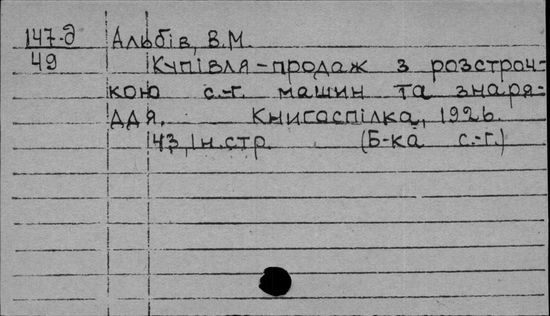 147-д Альбів, В.М.
49 Купівля-продаж з розстроч-
кою с.-г. машин та знаря-
ддя. Книгоспілка, 1926.
43, Ін.стр. (Б-ка с.-г.)